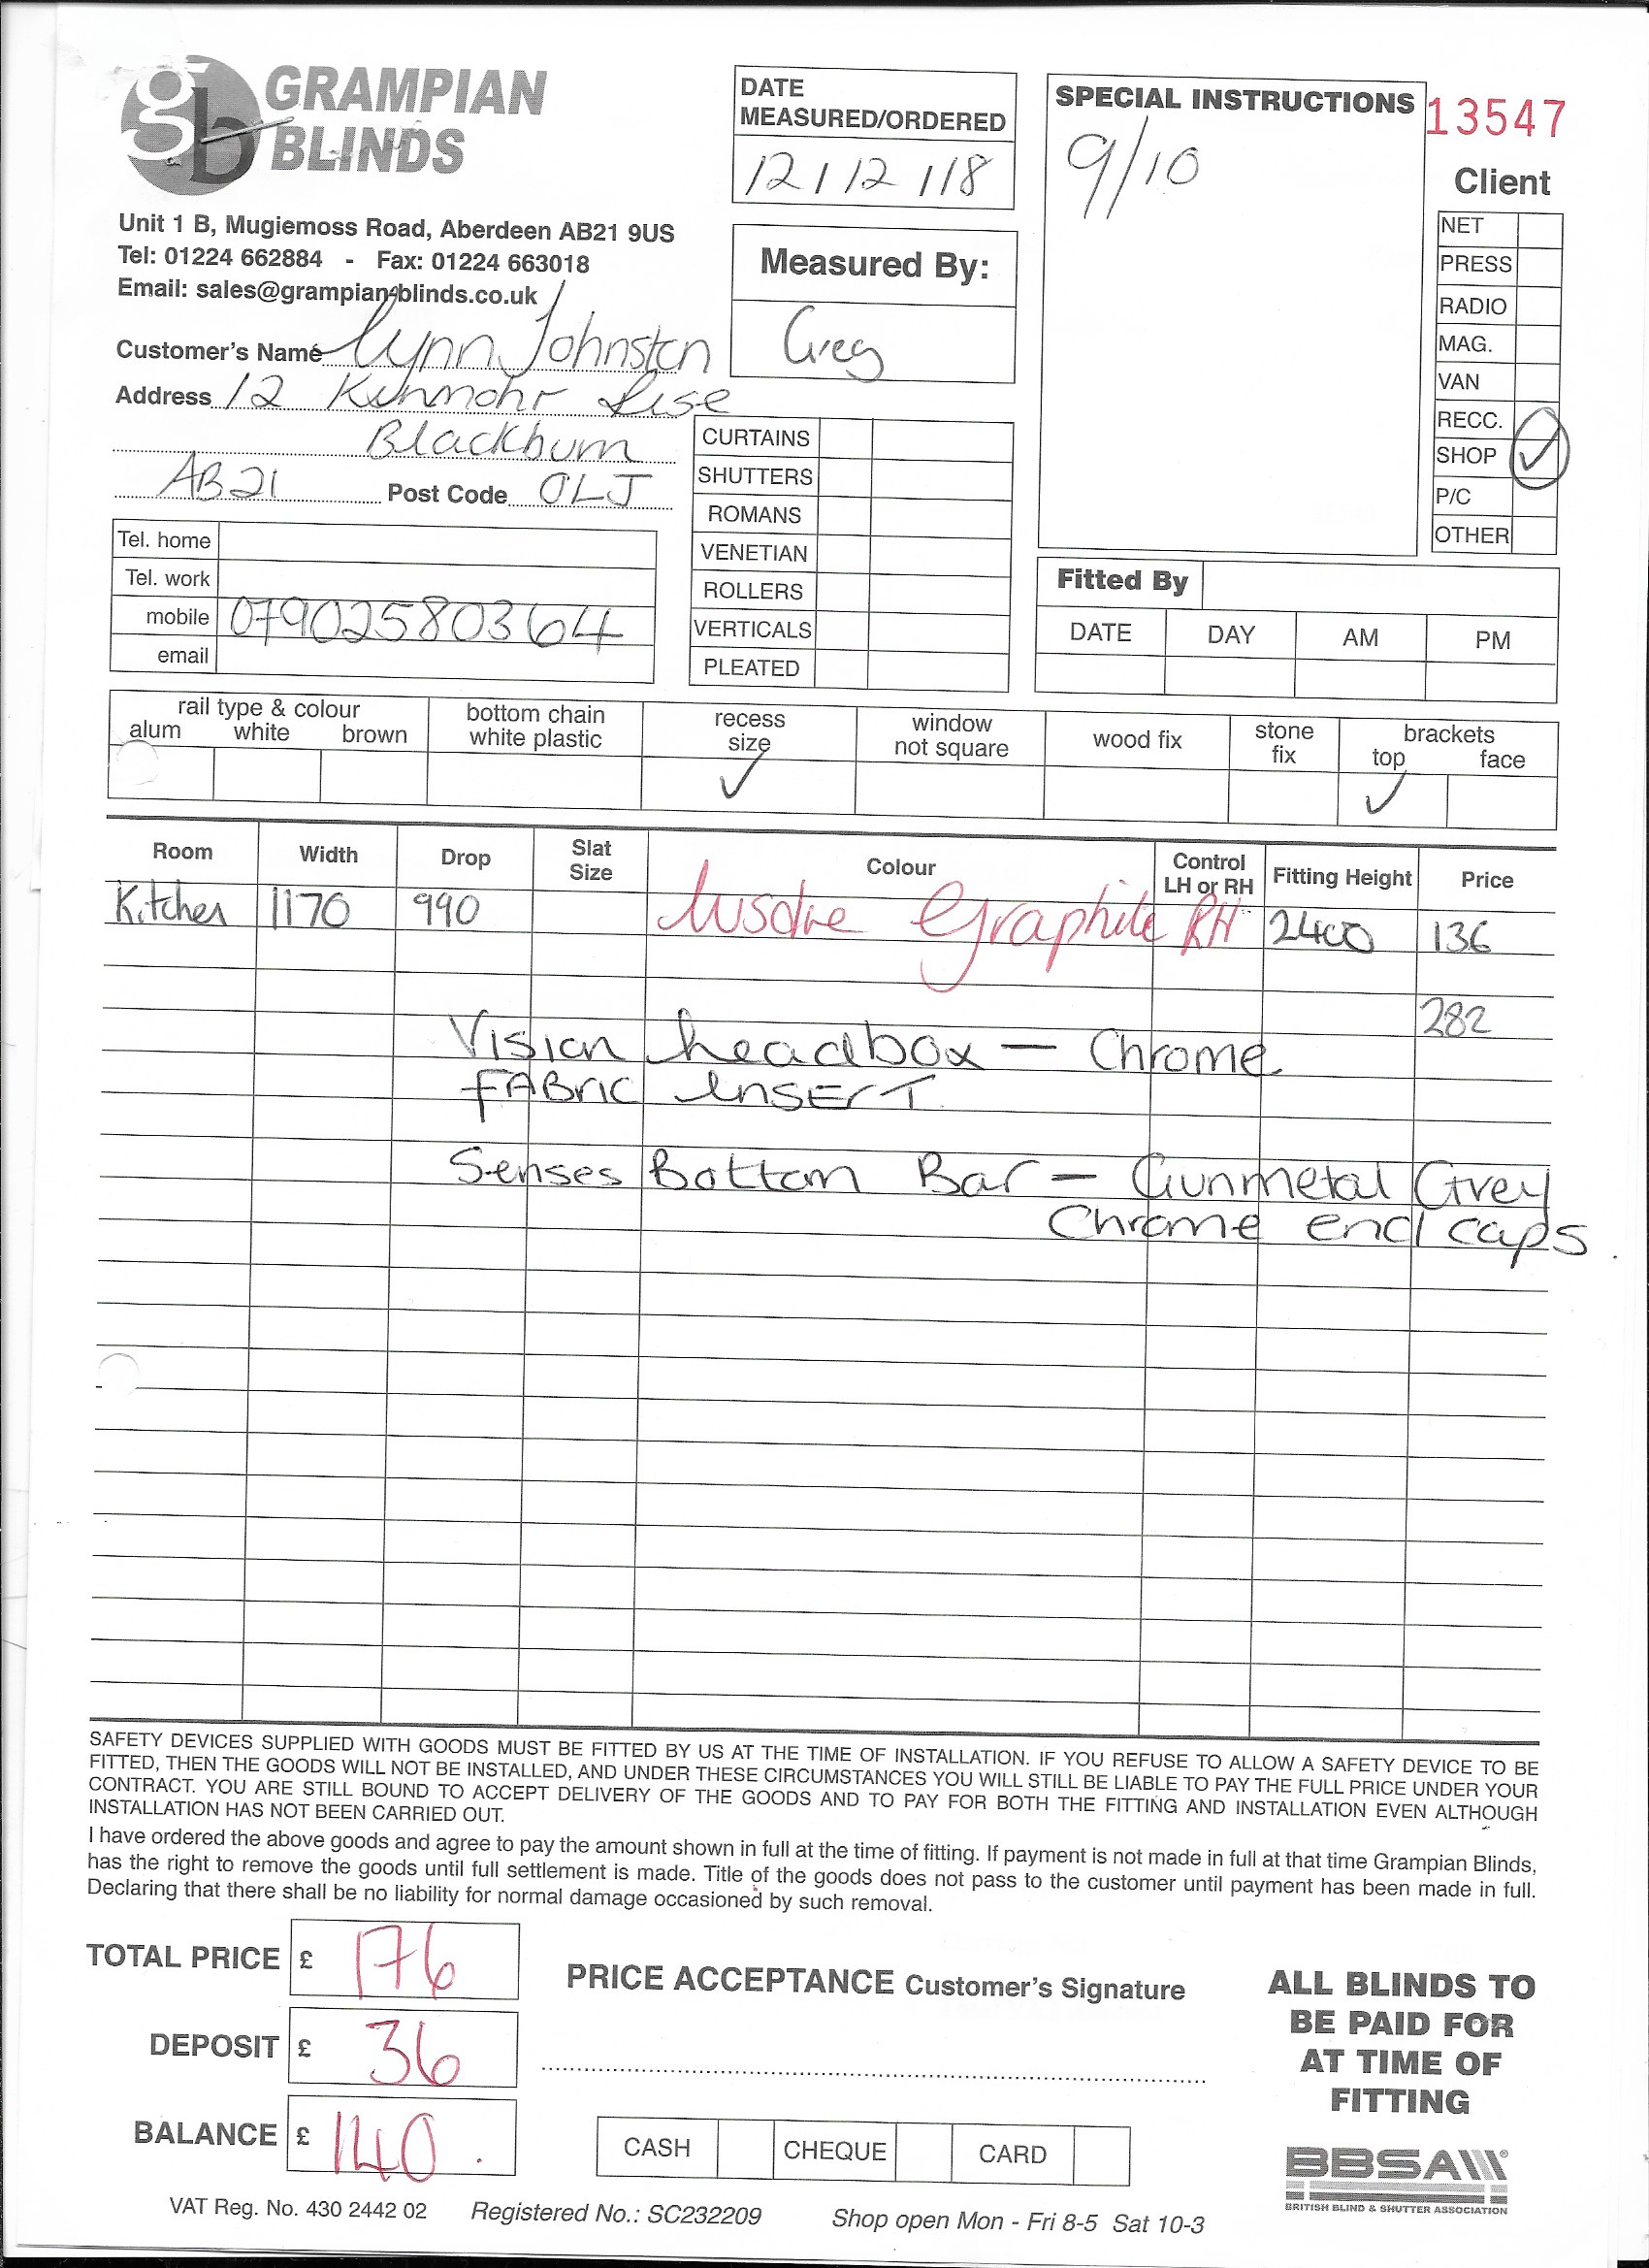 gb GRAMPIAN
BLINDS
Unit 1 B, Mugiemoss Road, Aberdeen AB21 9US
Tel: 01224 662884 - Fax: 01224 663018
Email: sales@grampianblinds.co.uk
Customer's Name Lynn Johnston
Address 12 Kinmohr Rise
Blackburn
AB21 Post Code 0LJ
DATE
MEASURED/ORDERED
12/12/18
Measured By:
Greg
SPECIAL INSTRUCTIONS
9/10
13547
Client
NET
PRESS
RADIO
MAG.
VAN
RECC.
SHOP ✓
P/C
OTHER
Tel. home
Tel. work
mobile 07902580364
email
CURTAINS
SHUTTERS
ROMANS
VENETIAN
ROLLERS
VERTICALS
PLEATED
Fitted By
DATE DAY AM PM
rail type & colour
alum white brown
bottom chain
white plastic
recess
size
✓
window
not square
wood fix
stone
fix
brackets
top face
✓
Room Width Drop Slat Size Colour Control LH or RH Fitting Height Price
Kitchen 1170 990 Graphite RH 2400 136
282
Vision headbox - Chrome
FABRIC INSERT
Senses Bottom Bar - Gunmetal Grey
Chrome end caps
SAFETY DEVICES SUPPLIED WITH GOODS MUST BE FITTED BY US AT THE TIME OF INSTALLATION. IF YOU REFUSE TO ALLOW A SAFETY DEVICE TO BE
FITTED, THEN THE GOODS WILL NOT BE INSTALLED, AND UNDER THESE CIRCUMSTANCES YOU WILL STILL BE LIABLE TO PAY THE FULL PRICE UNDER YOUR
CONTRACT. YOU ARE STILL BOUND TO ACCEPT DELIVERY OF THE GOODS AND TO PAY FOR BOTH THE FITTING AND INSTALLATION EVEN ALTHOUGH
INSTALLATION HAS NOT BEEN CARRIED OUT.
I have ordered the above goods and agree to pay the amount shown in full at the time of fitting. If payment is not made in full at that time Grampian Blinds,
has the right to remove the goods until full settlement is made. Title of the goods does not pass to the customer until payment has been made in full.
Declaring that there shall be no liability for normal damage occasioned by such removal.
TOTAL PRICE £ 176
DEPOSIT £ 36
BALANCE £ 140.
PRICE ACCEPTANCE Customer's Signature
CASH CHEQUE CARD
ALL BLINDS TO
BE PAID FOR
AT TIME OF
FITTING
BBSA
BRITISH BLIND & SHUTTER ASSOCIATION
VAT Reg. No. 430 2442 02 Registered No.: SC232209 Shop open Mon - Fri 8-5 Sat 10-3